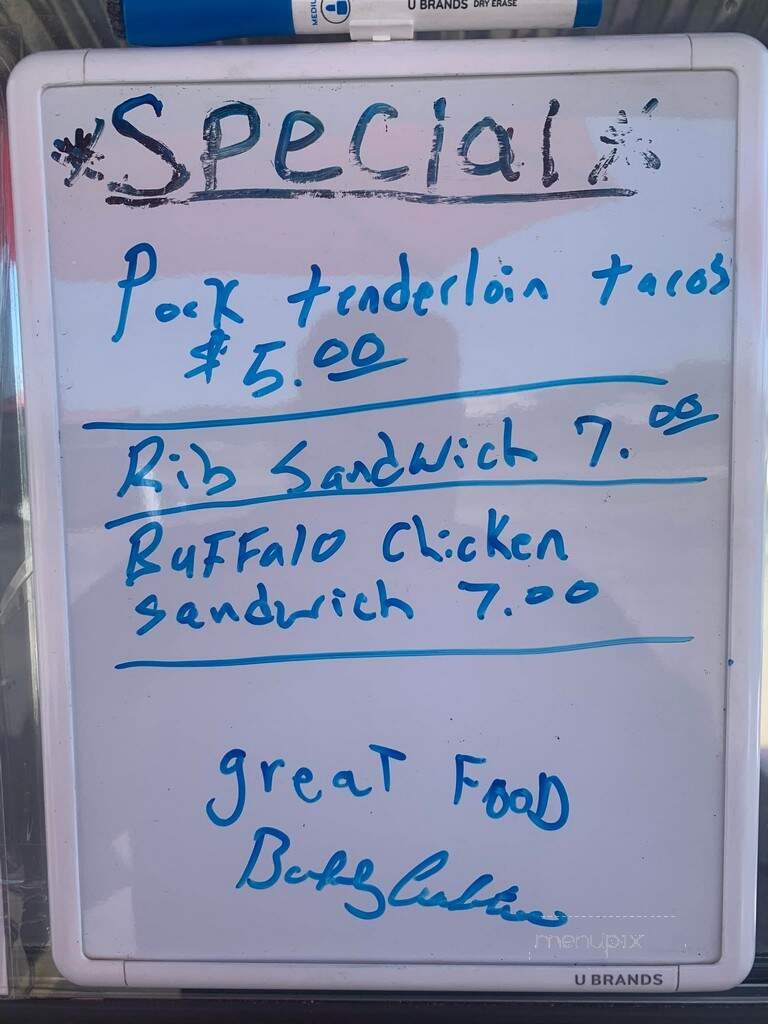 MEDIU
U BRANDS DRY ERASE
*Special*
Pork tenderloin tacos
$5.00
Rib Sandwich 7.00
BuFFalo chicken
sandwich 7.00
great FOOD
menupix
U BRANDS